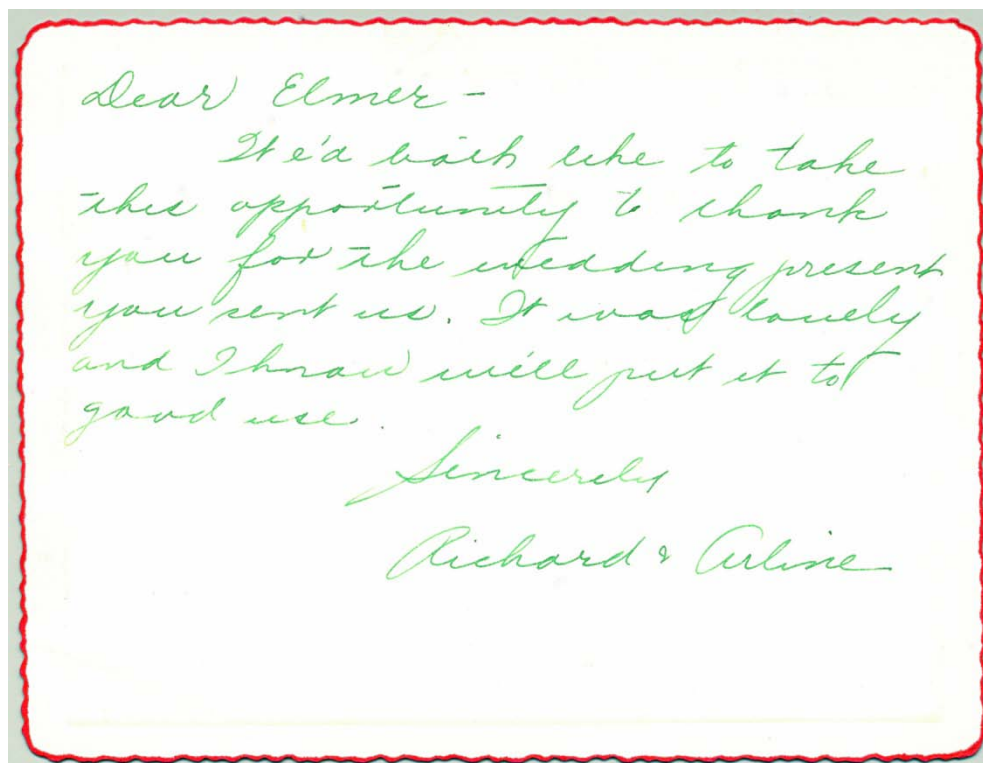 Dear Elmer -
We'd both like to take
this opportunity to thank
you for the wedding present
you sent us. It was lovely
and I know we'll put it to
good use.
Sincerely
Richard & Arline